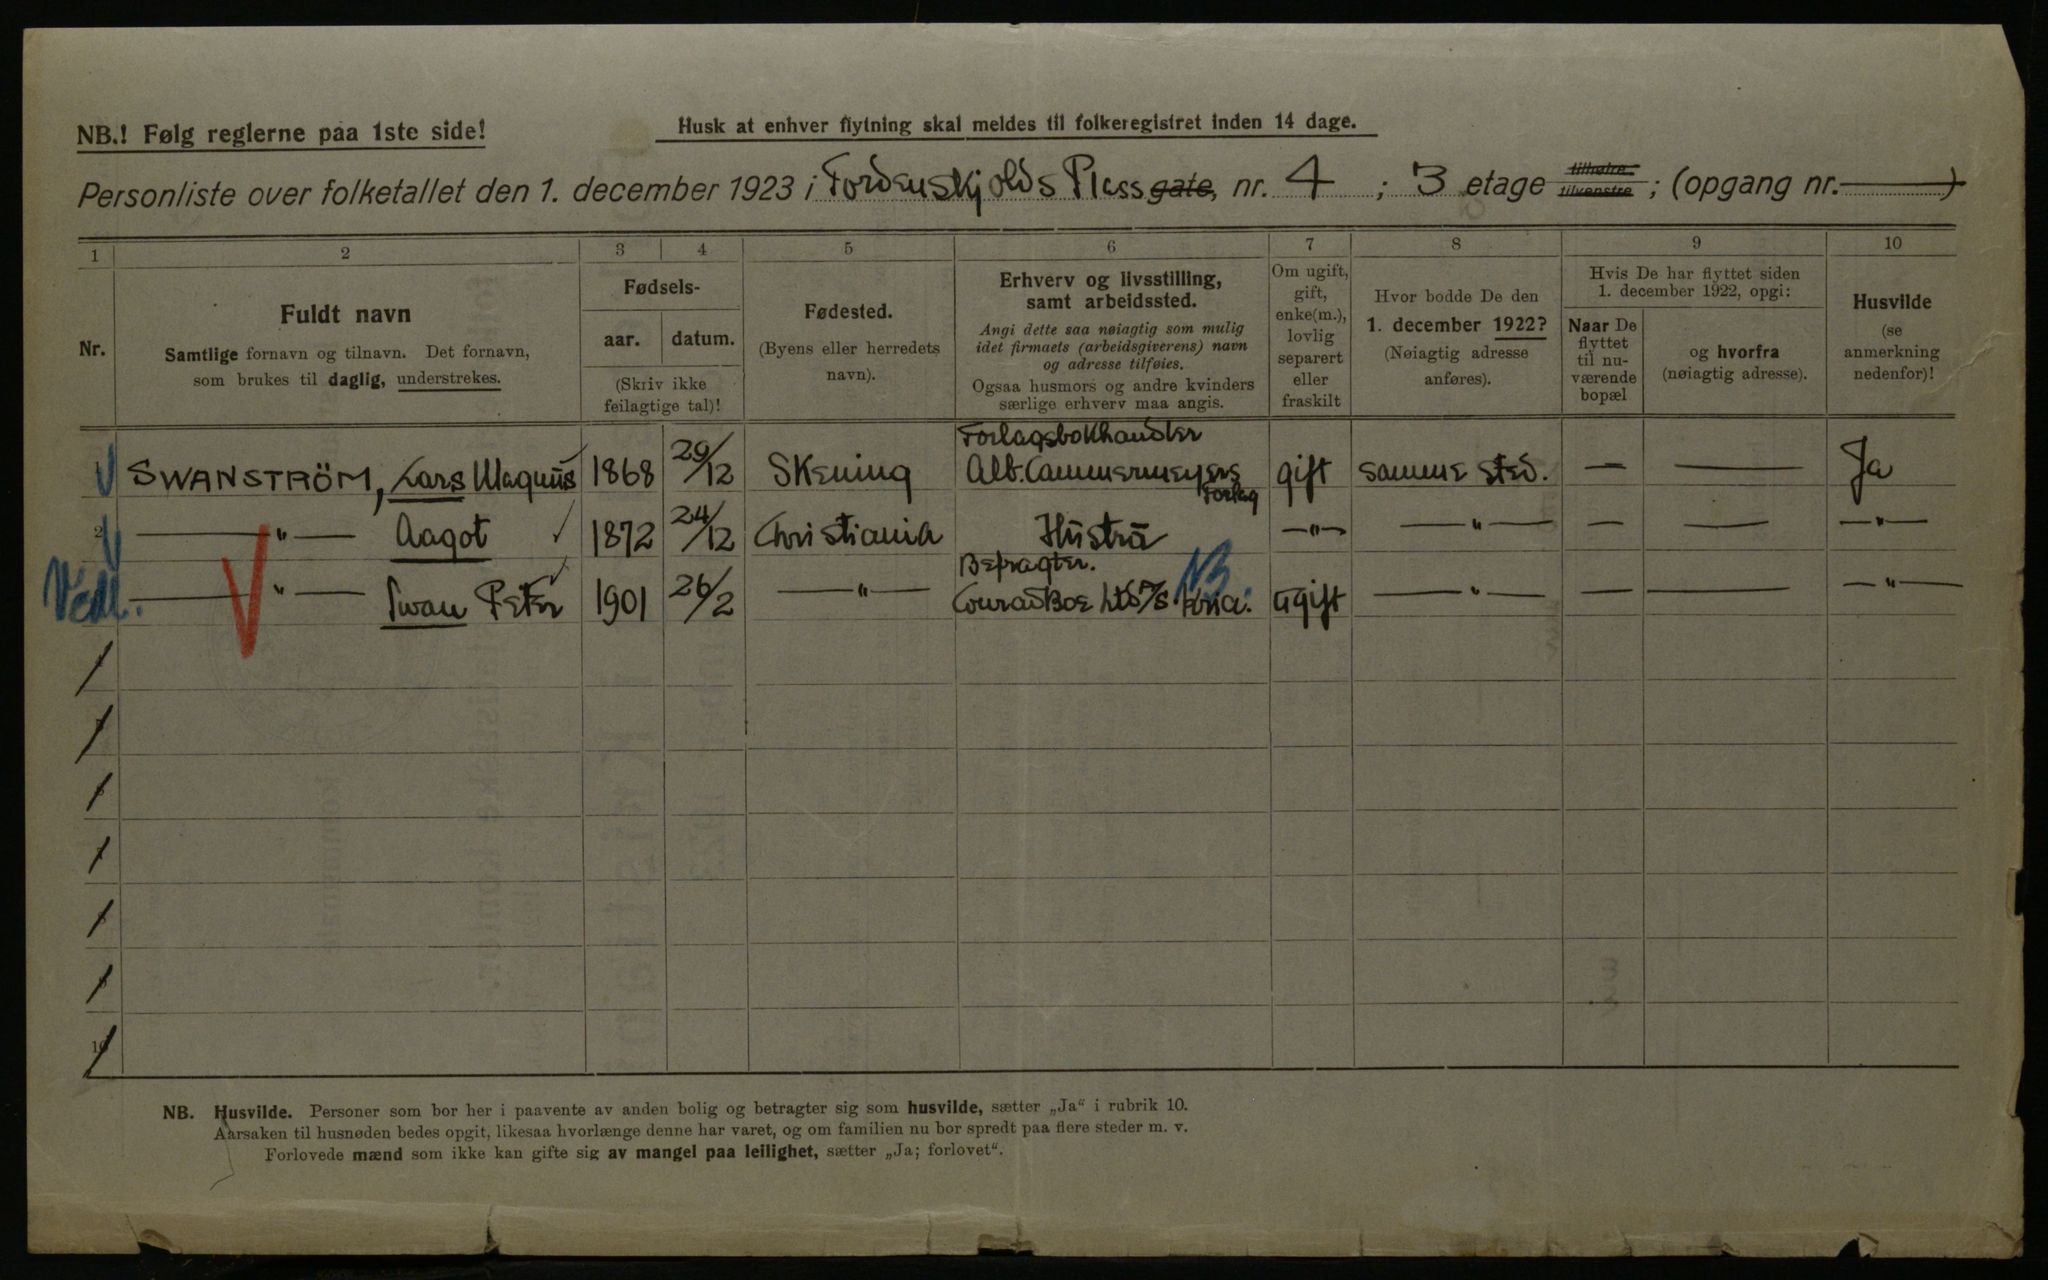 NB.! Følg reglerne paa 1ste side!
Husk at enhver flytning skal meldes til folkeregistret inden 14 dage.
Personliste over folketallet den 1. december 1923 i Tordenskjolds Plass gate, nr. 4 ; 3 etage tilhøire tilvenstre ; (opgang nr. )
1 2 3 4 5 6 7 8 9 10
Nr.
Fuldt navn
Samtlige fornavn og tilnavn. Det fornavn,
som brukes til daglig, understrekes.
Fødsels-
aar. datum.
(Skriv ikke
feilagtige tal)!
Fødested.
(Byens eller herredets
navn).
Erhverv og livsstilling,
samt arbeidssted.
Angi dette saa nøiagtig som mulig
idet firmaets (arbeidsgiverens) navn
og adresse tilføies.
Ogsaa husmors og andre kvinders
særlige erhverv maa angis.
Om ugift,
gift,
enke(m.),
lovlig
separert
eller
fraskilt
Hvor bodde De den
1. december 1922?
(Nøiagtig adresse
anføres).
Hvis De har flyttet siden
1. december 1922, opgi:
Naar De
flyttet
til nu-
værende
bopæl
og hvorfra
(nøiagtig adresse).
Husvilde
(se
anmerkning
nedenfor)!
SWANSTRÖM, Lars Magnus 1868 29/12 Skening Forlagsbokhandler Alb. Cammermeyers Forlag gift samme sted. — — Ja
2 —"— Aagot 1872 24/12 Christiania Hustru —"— —"— — — —"—
Vedl. —"— Swan Peter 1901 26/2 —"— Befragter. Conrad Boe Ltd A/S Kria. NB. ugift —"— — — —"—
10
NB. Husvilde. Personer som bor her i paavente av anden bolig og betragter sig som husvilde, sætter „Ja“ i rubrik 10.
Aarsaken til husnøden bedes opgit, likesaa hvorlænge denne har varet, og om familien nu bor spredt paa flere steder m. v.
Forlovede mænd som ikke kan gifte sig av mangel paa leilighet, sætter „Ja; forlovet“.